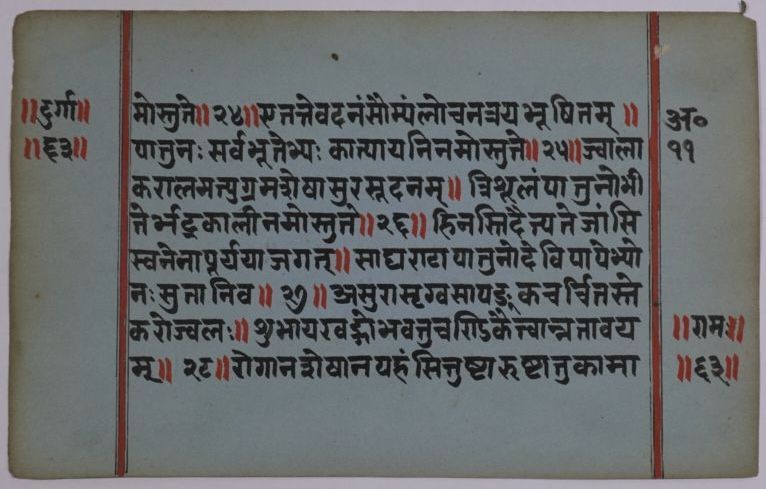 ॥दुर्गा॥
॥६३॥
मोस्तुते॥२४॥एतत्तेवदनंसौम्यंलोचनत्रयभूषितम्॥
पातुनःसर्वभूतेभ्यःकात्यायनिनमोस्तुते॥२५॥ज्वाला
करालमत्युग्रमशेषासुरसूदनम्॥त्रिशूलंपातुनोभी
तेर्भद्रकालीनमोस्तुते॥२६॥हिनस्तिदैत्यतेजांसि
स्वनेनापूर्ययाजगत्॥साघण्टापातुनोदेविपापेभ्यो
नःसुतानिव॥२७॥असुरासृग्वसापङ्कचर्चितस्ते
करोज्वलः॥शुभायखङ्गोभवतुचण्डिकेत्वान्नतावय
म्॥२८॥रोगानशेषानपहंसितुष्टारुष्टातुकामा
अ०
११
॥रामः॥
॥६३॥